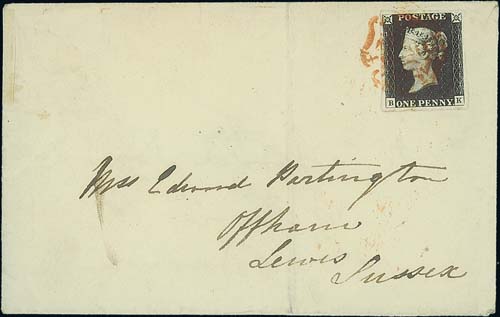 POSTAGE
B K
ONE PENNY
Mrs Edward Partington
Offham
Lewis
Sussex